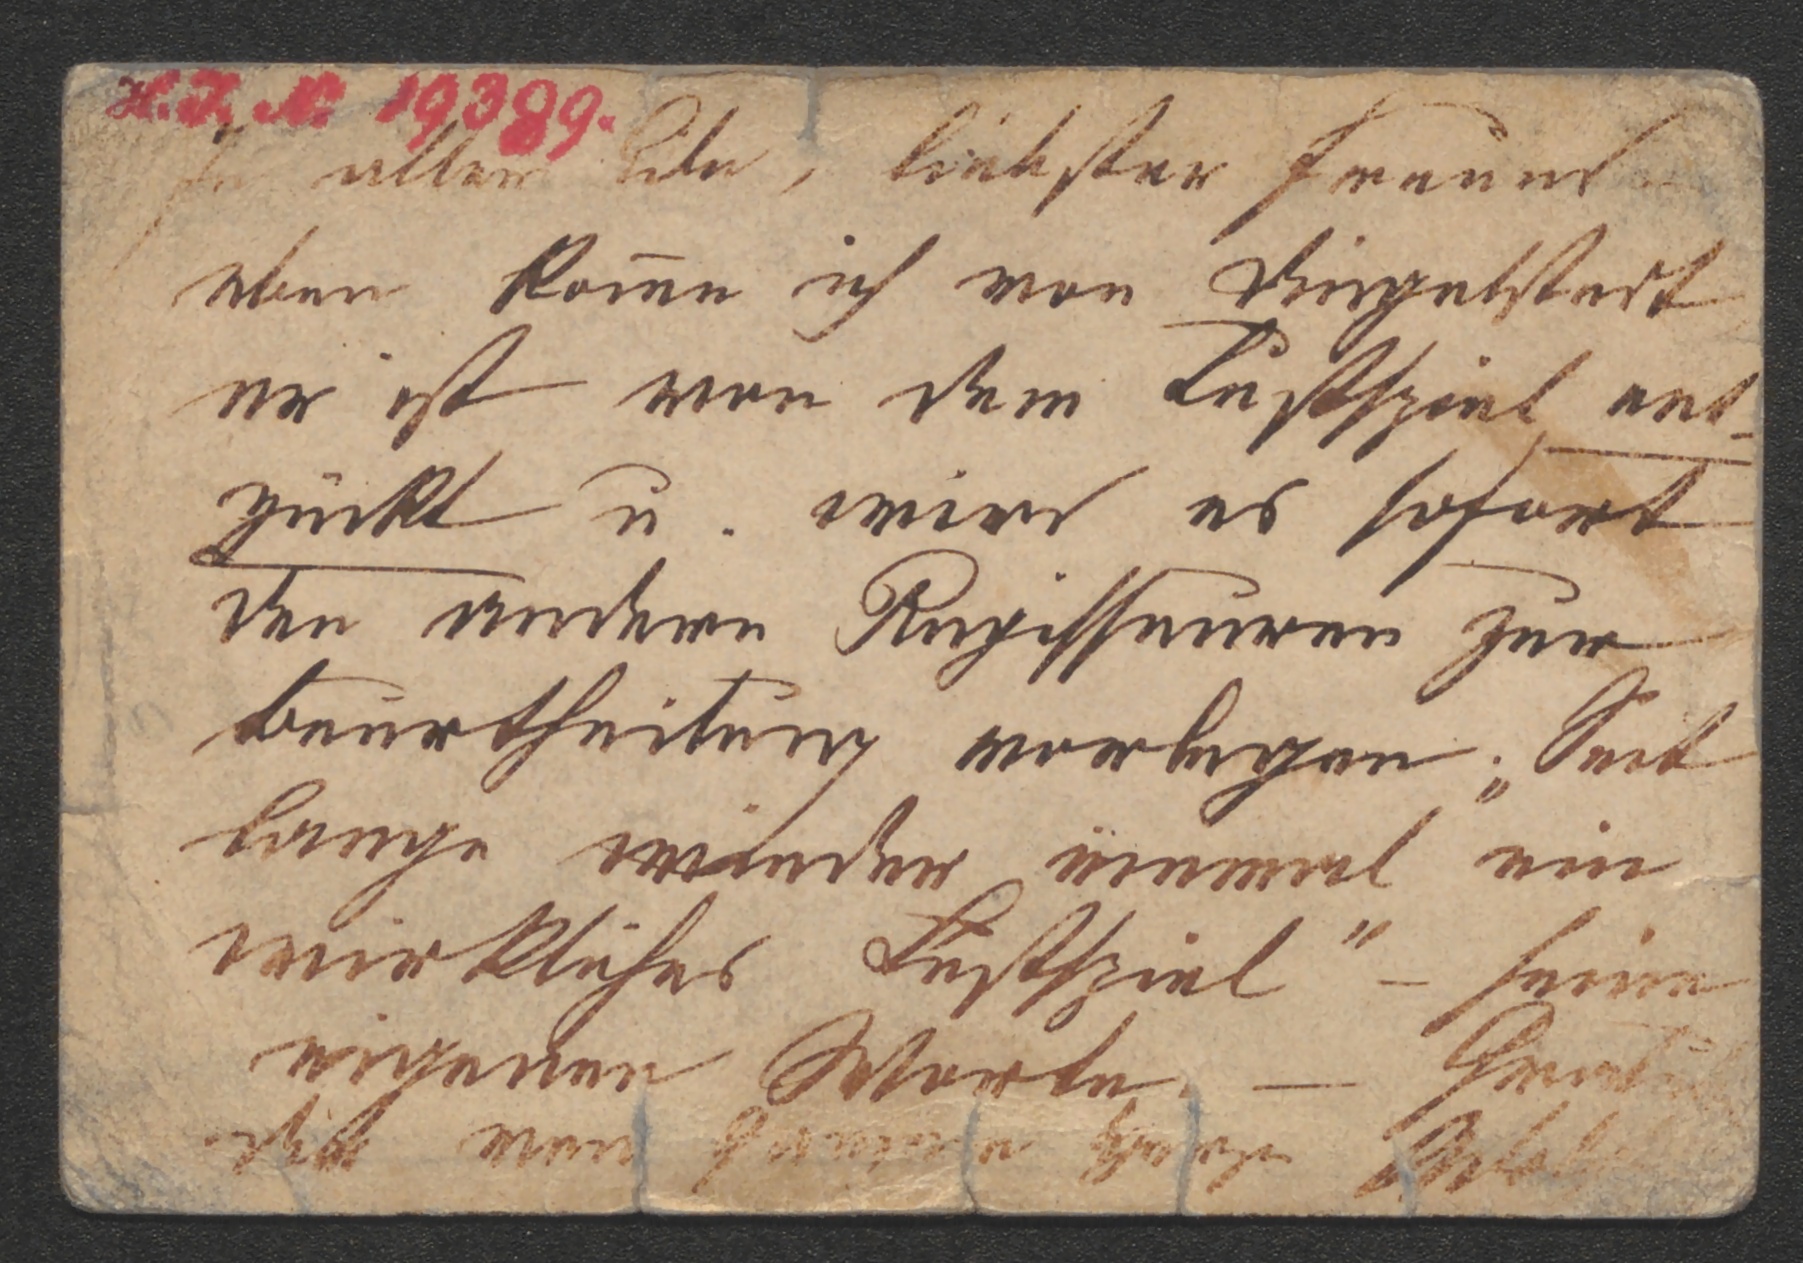 H. I. N. 19389.
In aller Eile, liebster Freund
eben kom̄e ich von Dingelstedt
er ist von dem Lustspiel ent-
zückt u. wird es sofort
den andern Regisseuren zur
Beurtheilung vorlegen. „Seit
lange wieder einmal ein
wirkliches Lustspiel" – seine
eigenen Worte. —